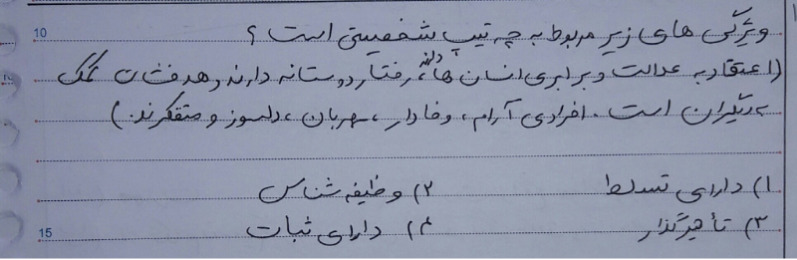 10
ویژگی های زیر مربوط به چه تیپ شخصیتی است؟
(اعتقاد به عدالت و برابری انسان ها دارند، رفتار دوستانه دارند و هدفشان کمک
به دیگران است. افرادی آرام، وفادار، مهربان، دلسوز و متفکرند.)
۱) دارای تسلط ۲) وظیفه شناس
۳) تأثیرگذار ۴) دارای ثبات
15